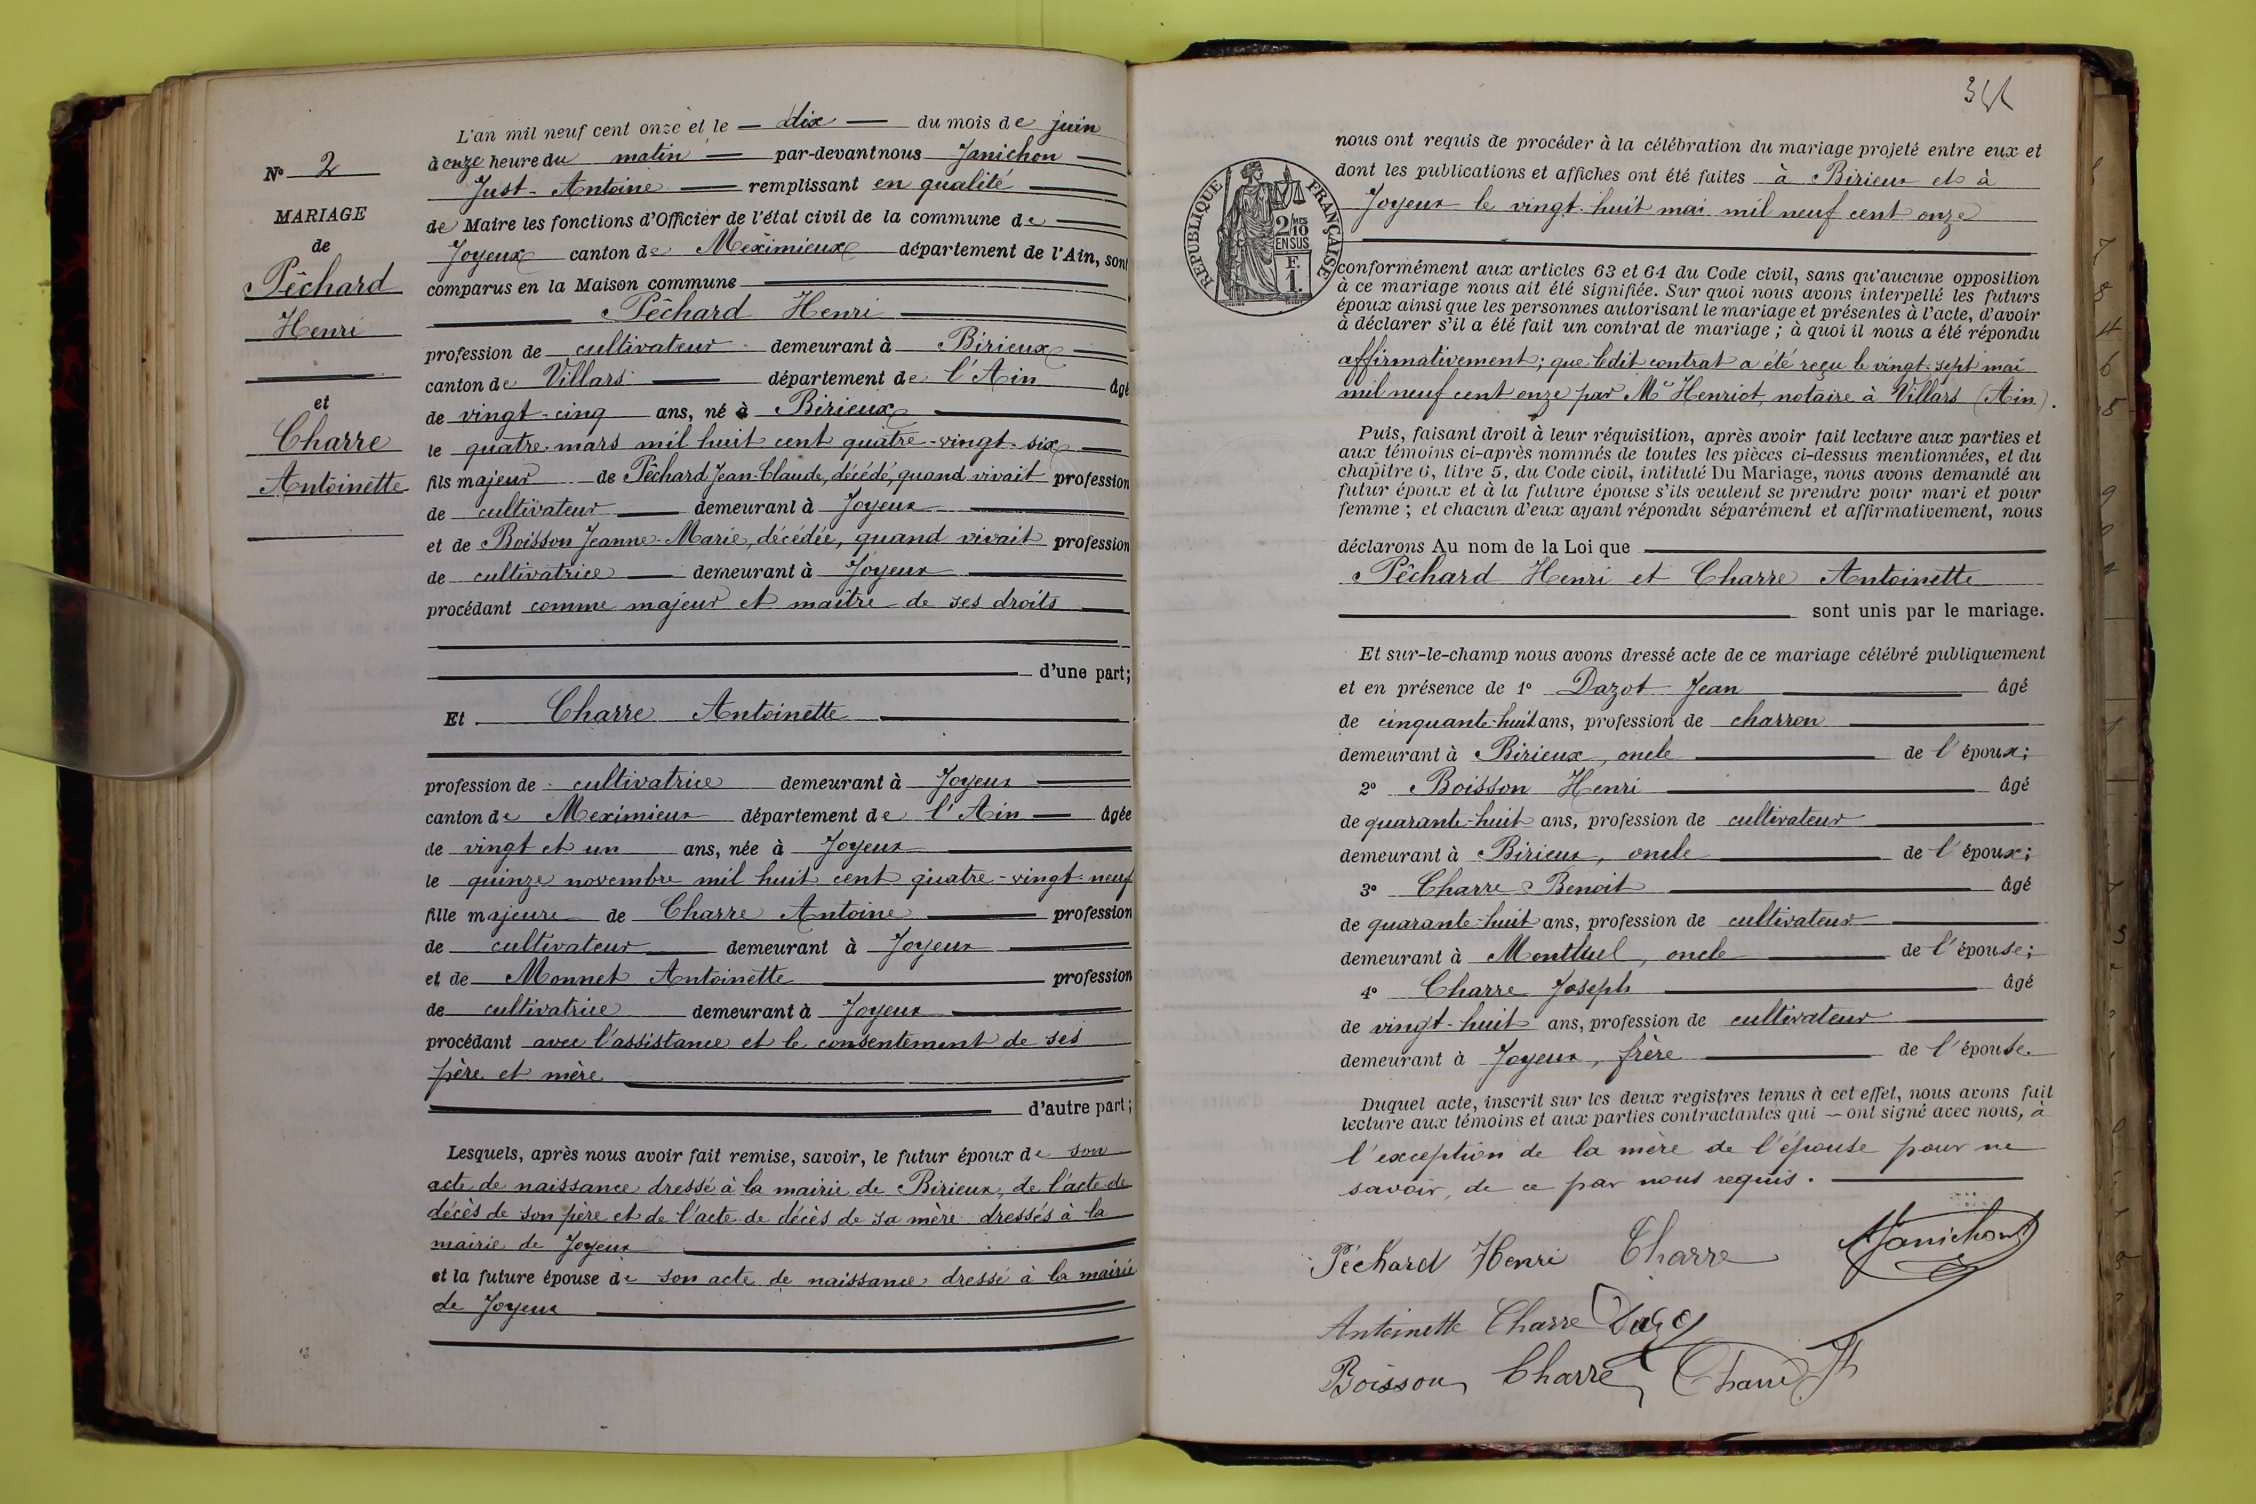 N° 2
MARIAGE
de
Pêchard
Henri
et
Charre
Antoinette
L'an mil neuf cent onze et le dix du mois de juin
à onze heure du matin par-devant nous Janichon
Just-Antoine remplissant en qualité
de Maire les fonctions d'Officier de l'état civil de la commune de
Joyeux canton de Meximieux département de l'Ain, sont
comparus en la Maison commune
Pêchard Henri
profession de cultivateur demeurant à Birieux
canton de Villars département de l'Ain âgé
de vingt-cinq ans, né à Birieux
le quatre mars mil huit cent quatre-vingt-six
fils majeur de Pêchard Jean-Claude, décédé, quand vivait profession
de cultivateur demeurant à Joyeux
et de Boisson Jeanne-Marie, décédée, quand vivait profession
de cultivatrice demeurant à Joyeux
procédant comme majeur et maître de ses droits
d'une part;
Et Charre Antoinette
profession de cultivatrice demeurant à Joyeux
canton de Meximieux département de l'Ain âgée
de vingt et un ans, née à Joyeux
le quinze novembre mil huit cent quatre-vingt-neuf
fille majeure de Charre Antoine profession
de cultivateur demeurant à Joyeux
et de Monnet Antoinette profession
de cultivatrice demeurant à Joyeux
procédant avec l'assistance et le consentement de ses
père et mère
d'autre part;
Lesquels, après nous avoir fait remise, savoir, le futur époux de son
acte de naissance dressé à la mairie de Birieux, de l'acte de
décès de son père et de l'acte de décès de sa mère dressés à la
mairie de Joyeux
et la future épouse de son acte de naissance dressé à la mairie
de Joyeux
nous ont requis de procéder à la célébration du mariage projeté entre eux et
dont les publications et affiches ont été faites à Birieux et à
Joyeux le vingt-huit mai mil neuf cent onze
RÉPUBLIQUE FRANÇAISE
2/10 MES
EN SUS
F.
1.
conformément aux articles 63 et 64 du Code civil, sans qu'aucune opposition
à ce mariage nous ait été signifiée. Sur quoi nous avons interpellé les futurs
époux ainsi que les personnes autorisant le mariage et présentes à l'acte, d'avoir
à déclarer s'il a été fait un contrat de mariage ; à quoi il nous a été répondu
affirmativement; que ledit contrat a été reçu le vingt-sept mai
mil neuf cent onze par Me Henriot, notaire à Villars (Ain).
Puis, faisant droit à leur réquisition, après avoir fait lecture aux parties et
aux témoins ci-après nommés de toutes les pièces ci-dessus mentionnées, et du
chapitre 6, titre 5, du Code civil, intitulé Du Mariage, nous avons demandé au
futur époux et à la future épouse s'ils veulent se prendre pour mari et pour
femme ; et chacun d'eux ayant répondu séparément et affirmativement, nous
déclarons Au nom de la Loi que
Pêchard Henri et Charre Antoinette
sont unis par le mariage.
Et sur-le-champ nous avons dressé acte de ce mariage célébré publiquement
et en présence de 1° Dazot Jean âgé
de cinquante-huit ans, profession de charron
demeurant à Birieux, oncle de l'époux;
2° Boisson Henri âgé
de quarante-huit ans, profession de cultivateur
demeurant à Birieux, oncle de l'époux;
3° Charre Benoit âgé
de quarante-huit ans, profession de cultivateur
demeurant à Montluel, oncle de l'épouse;
4° Charre Joseph âgé
de vingt-huit ans, profession de cultivateur
demeurant à Joyeux, frère de l'épouse.
Duquel acte, inscrit sur les deux registres tenus à cet effet, nous avons fait
lecture aux témoins et aux parties contractantes qui ont signé avec nous, à
l'exception de la mère de l'épouse pour ne
savoir, de ce par nous requis.
Péchard Henri Charre Janichon
Antoinette Charre
Boisson Charre Charre Jh